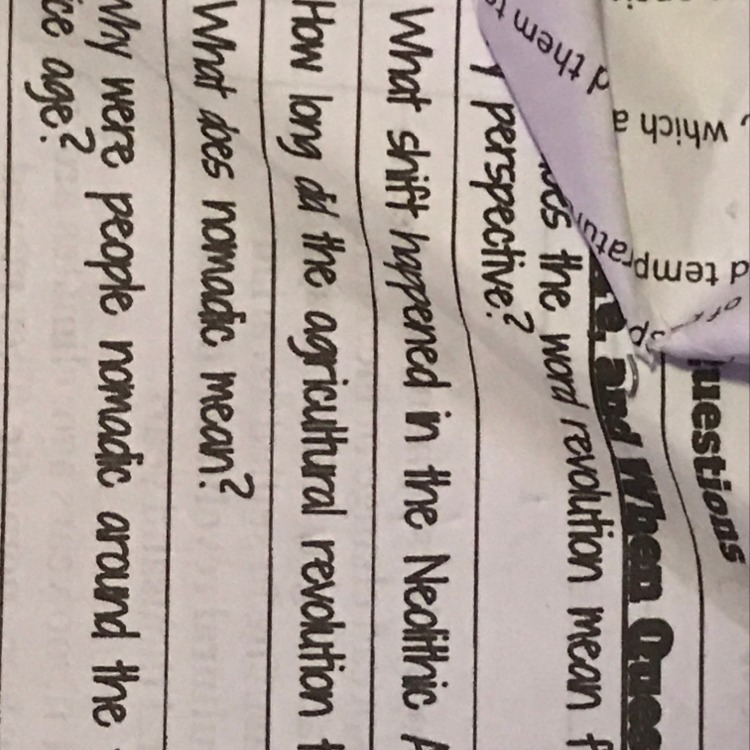 uestions
and When Ques
the word revolution mean f
y perspective?
What shift happened in the Neolithic A
How long did the agricultural revolution t
What does nomadic mean?
Why were people nomadic around the
ice age?
d them t
, which a
d tempratur